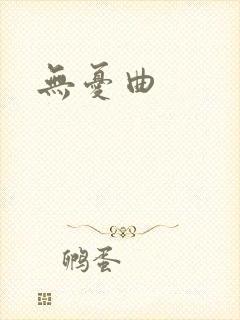 無憂曲
鹏蛋